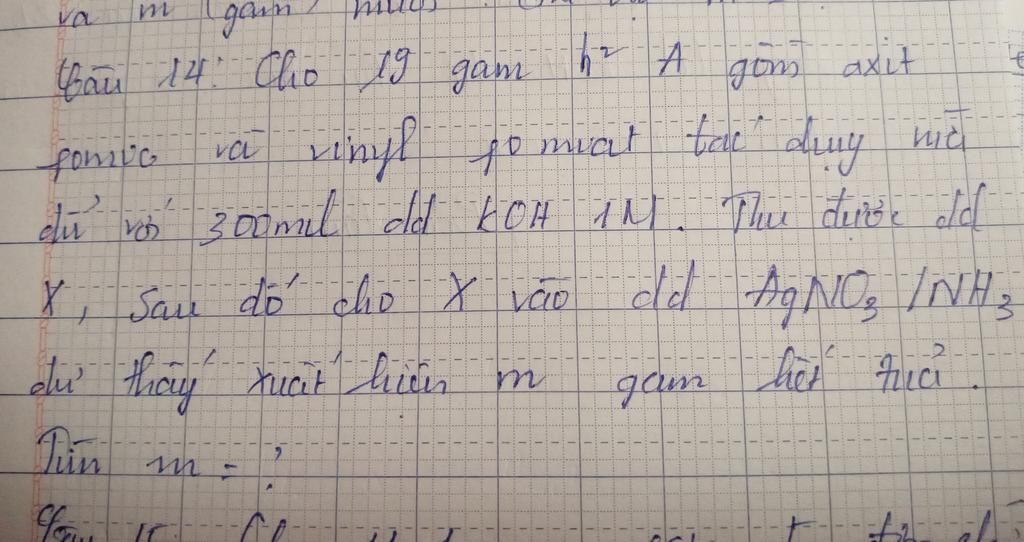 và m (gam)
Câu 14: Cho 19 gam h² A gồm axit
fomic và vinyl fo miat tác dụng vừa
đủ với 300ml dd KOH 1M. Thu được dd
X, sau đó cho X vào dd AgNO₃ /NH₃
dư thấy xuất hiện m gam kết tủa.
Tìm m = ?